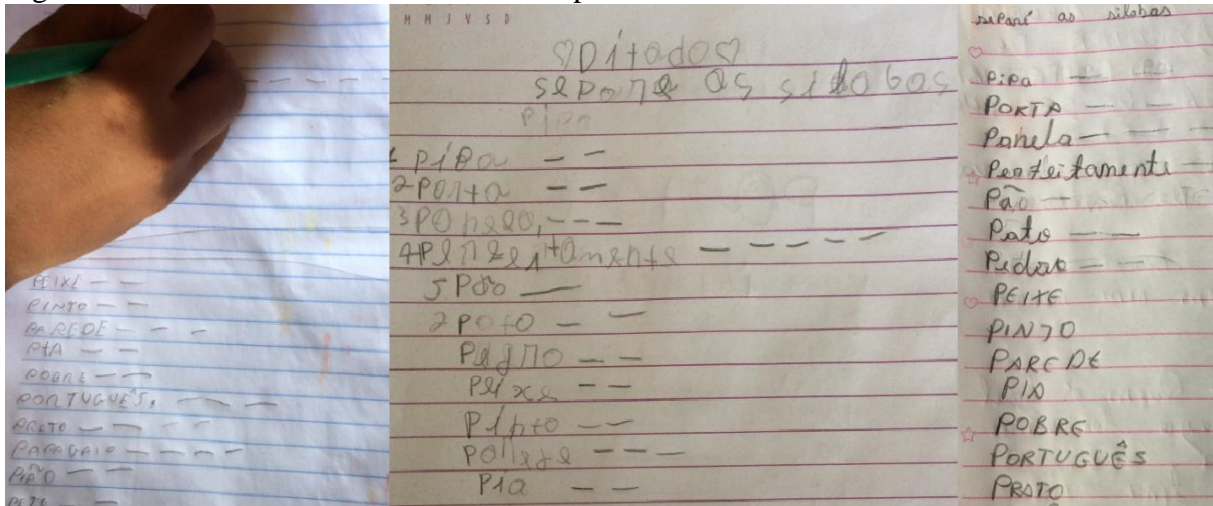 PEIXE — —
PINTO — —
PAREDE — — —
PIA — —
POBRE — —
PORTUGUÊS. — — —
PRETO — — —
PAPAGAIO — — — —
PIÃO — —
M M J V S D
♡Ditado♡
separe as silabas
pipa
1 pipa — —
2 porta — —
3 — — —
4 — — — — —
5 pão —
2 pato — —
pedro — —
peixe — —
pinto — —
parede — — —
pia — —
separe as silabas
Pipa — —
PORTA — —
Panela — — —
Perfeitamente —
Pão —
Pato — —
Pedao — —
PEIXE
PINTO
PAREDE
PIA
POBRE
PORTUGUÊS
PRATO